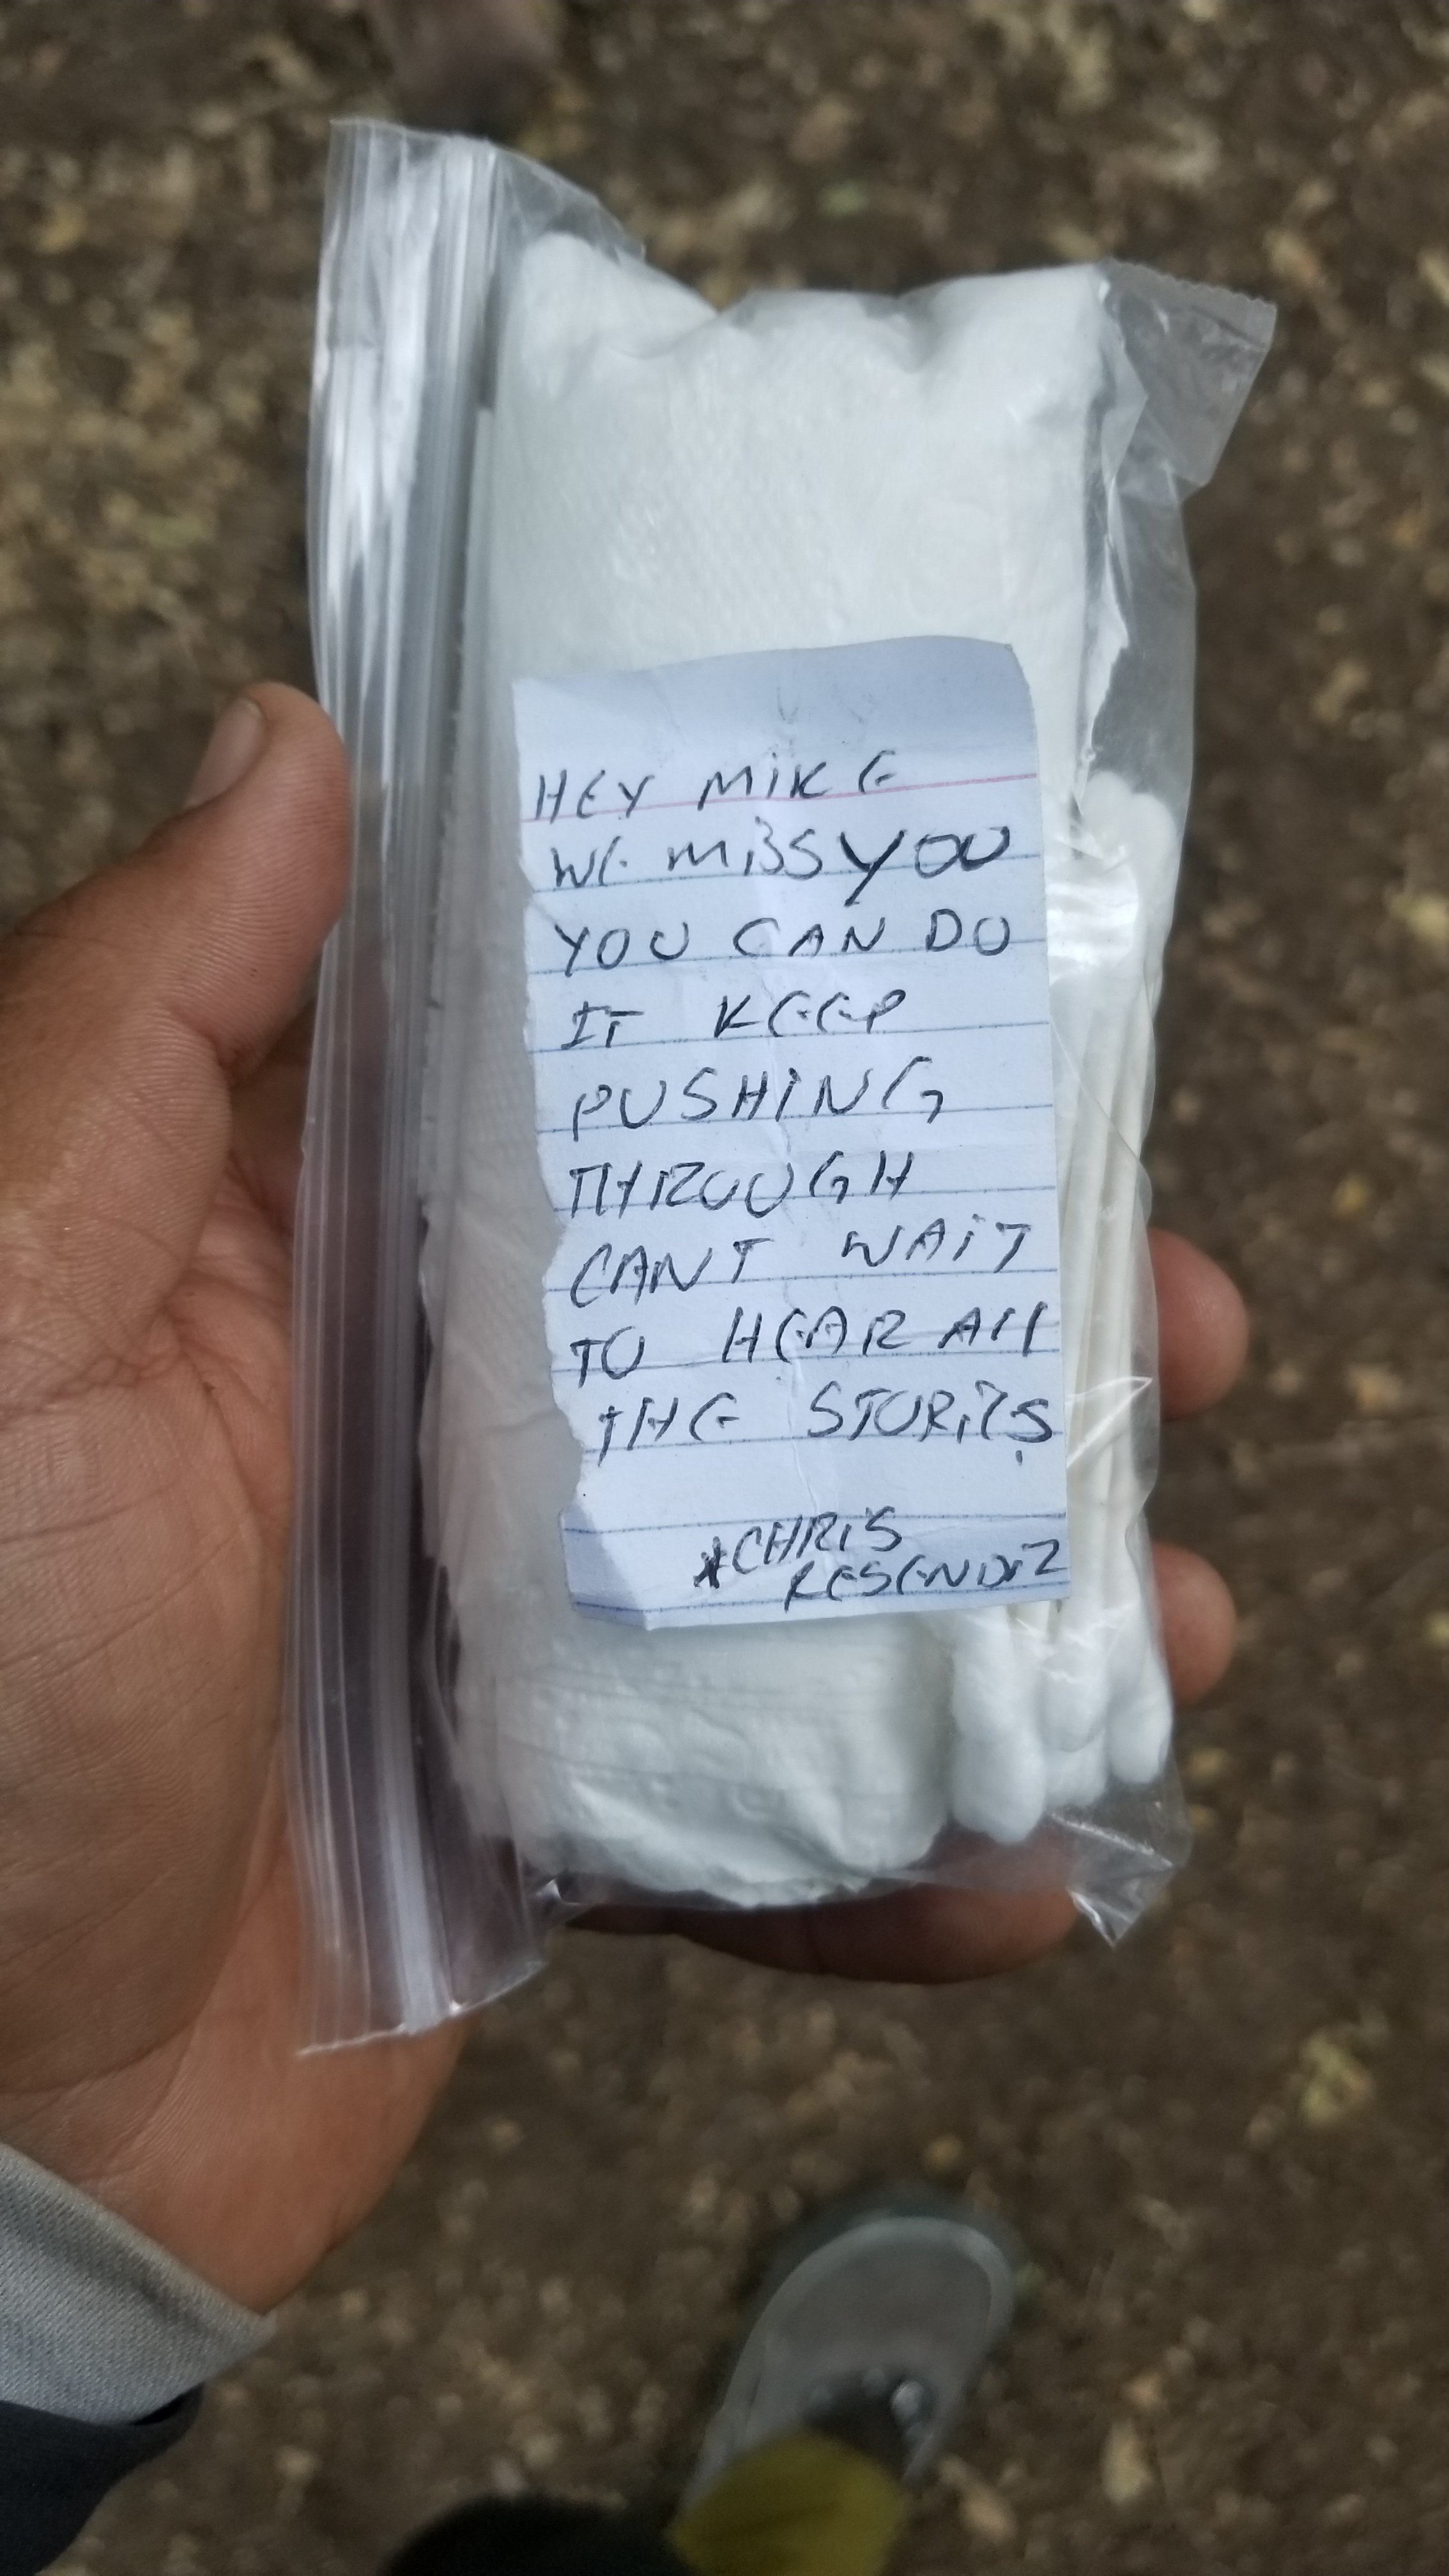 HEY MIKE
WE MISS YOU
YOU CAN DO
IT KEEP
PUSHING
THROUGH
CANT WAIT
TO HEAR All
THE STORIES
*CHRIS
RESENDIZ